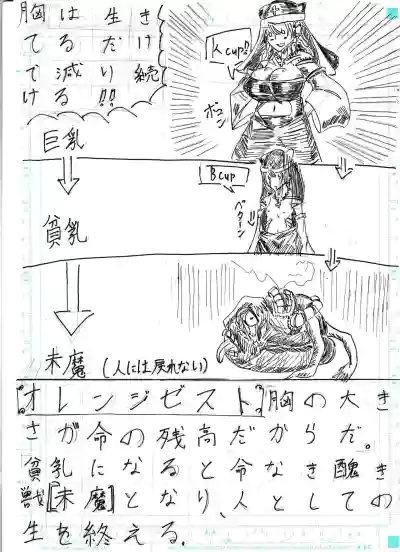 胸は生き
てるだけ
で減り続
ける!!
Kcup!!
巨乳
Bcup
ペターン
貧乳
未魔(人には戻れない)
『オレンジゼスト』胸の大き
さが命の残高だからだ。
貧乳になると命なき醜き
獣[未魔]となり、人としての
生を終える.